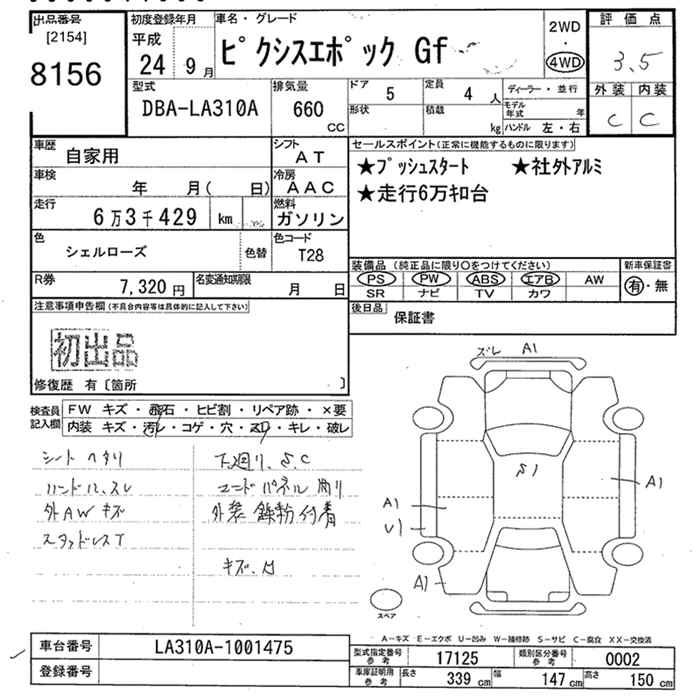 出品番号
[2154]
8156
初度登録年月
平成
24 9月
車名・グレード
ピクシスエポック Gf
2WD
・
4WD
評価点
3.5
外装 内装
C C
型式
DBA-LA310A
排気量
660
CC
ドア
5
定員
4 人
形状
積載
kg
ディーラー・並行
モデル年式 年
ハンドル 左・右
車歴
自家用
シフト
AT
車検
年 月( 日)
冷房
AAC
走行
6万3千429 km
燃料
ガソリン
色
シェルローズ
色替
色コード
T28
R券
7,320円
名変通知期限
月 日
セールスポイント(正常に機能するものに限ります)
★プッシュスタート ★社外アルミ
★走行6万キロ台
装備品 (純正品に限り〇をつけてください)
PS PW ABS エアB AW
SR ナビ TV カワ
新車保証書
有・無
後日品
保証書
注意事項申告欄(不具合内容等は具体的に記入して下さい)
初出品
修復歴 有〔箇所 〕
検査員
記入欄
FW キズ・飛石・ヒビ割・リペア跡・×要
内装 キズ・汚レ・コゲ・穴・スリ・キレ・破レ
シートヘタリ
ハンドル、スレ
外AWキズ
スタッドレスT
下廻り、S、C
コードパネル
外装 鉄粉付着
キズ、凹
ズレ A1
S1
A1
A1
U1
A1
スペア
A-キズ E-エクボ U-凹み W-補修跡 S-サビ C-腐食 XX-交換済
車台番号
LA310A-1001475
登録番号
型式指定番号
参考
17125
類別区分番号
参考
0002
車庫証明用
参考
長さ
339 cm
幅
147 cm
高さ
150 cm